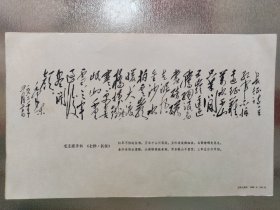 长征诗一首
红军不怕
远征难
万水千山
只等闲
五岭逶迤
腾细浪
乌蒙磅礴
走泥丸
金沙水
拍云崖
暖大渡
桥横铁索
寒更喜
岷山千里雪
三军过后
尽开颜
毛泽东
毛主席手书《七律·长征》
红军不怕远征难，万水千山只等闲。五岭逶迤腾细浪，乌蒙磅礴走泥丸。
金沙水拍云崖暖，大渡桥横铁索寒。更喜岷山千里雪，三军过后尽开颜。